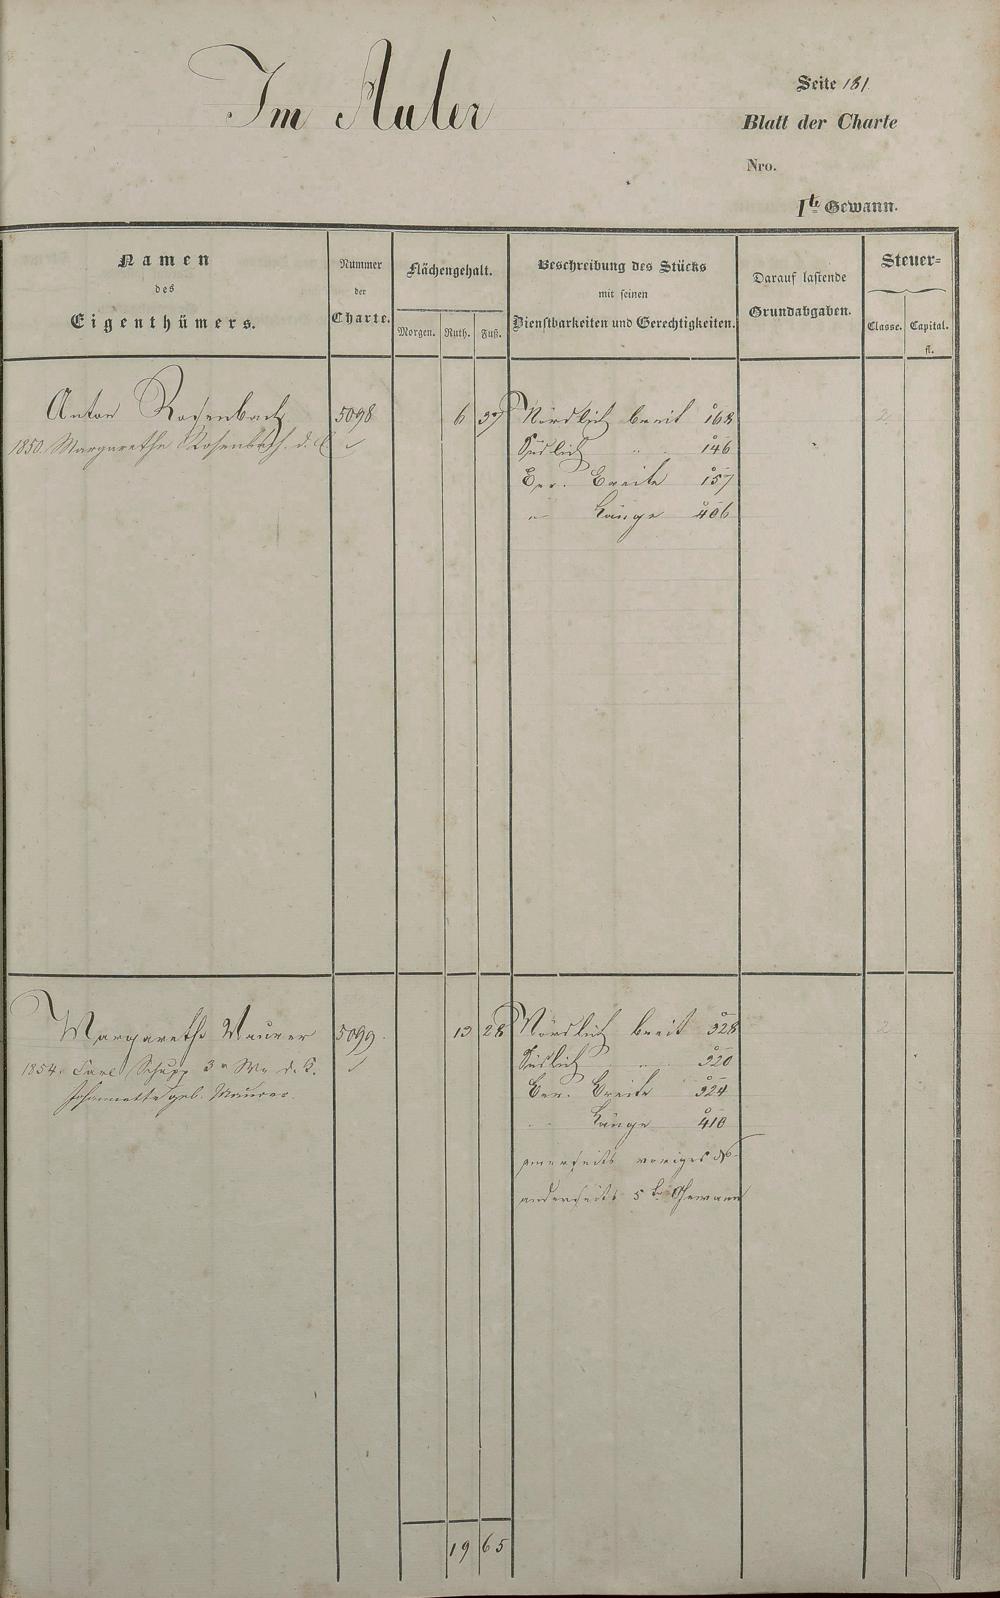 Im Auler
Seite 181
Blatt der Charte
Nro.
1te Gewann.
Namen
des
Eigenthümers.
Nummer
der
Charte.
Flächengehalt.
Morgen. Ruth. Fuß.
Beschreibung des Stücks
mit seinen
Dienstbarkeiten und Gerechtigkeiten.
Darauf lastende
Grundabgaben.
Steuer=
Classe. Capital.
fl.
Anton Rosenbach 5098 6 37 Nördlich breit 168 2
1850. Margarethe Rosenbach d. C
Südlich " 146
Ber. Breite 157
" Länge 406
Margarethe Maurer 5099. 13 28 Nördlich breit 328 2
1854. Carl Schupp 3r We d. K.
Johannette geb. Maurer.
Südlich " 320
Ber. Breite 324
" Länge 410
einerseits voriges
anderseits 5te Gewann
19 65